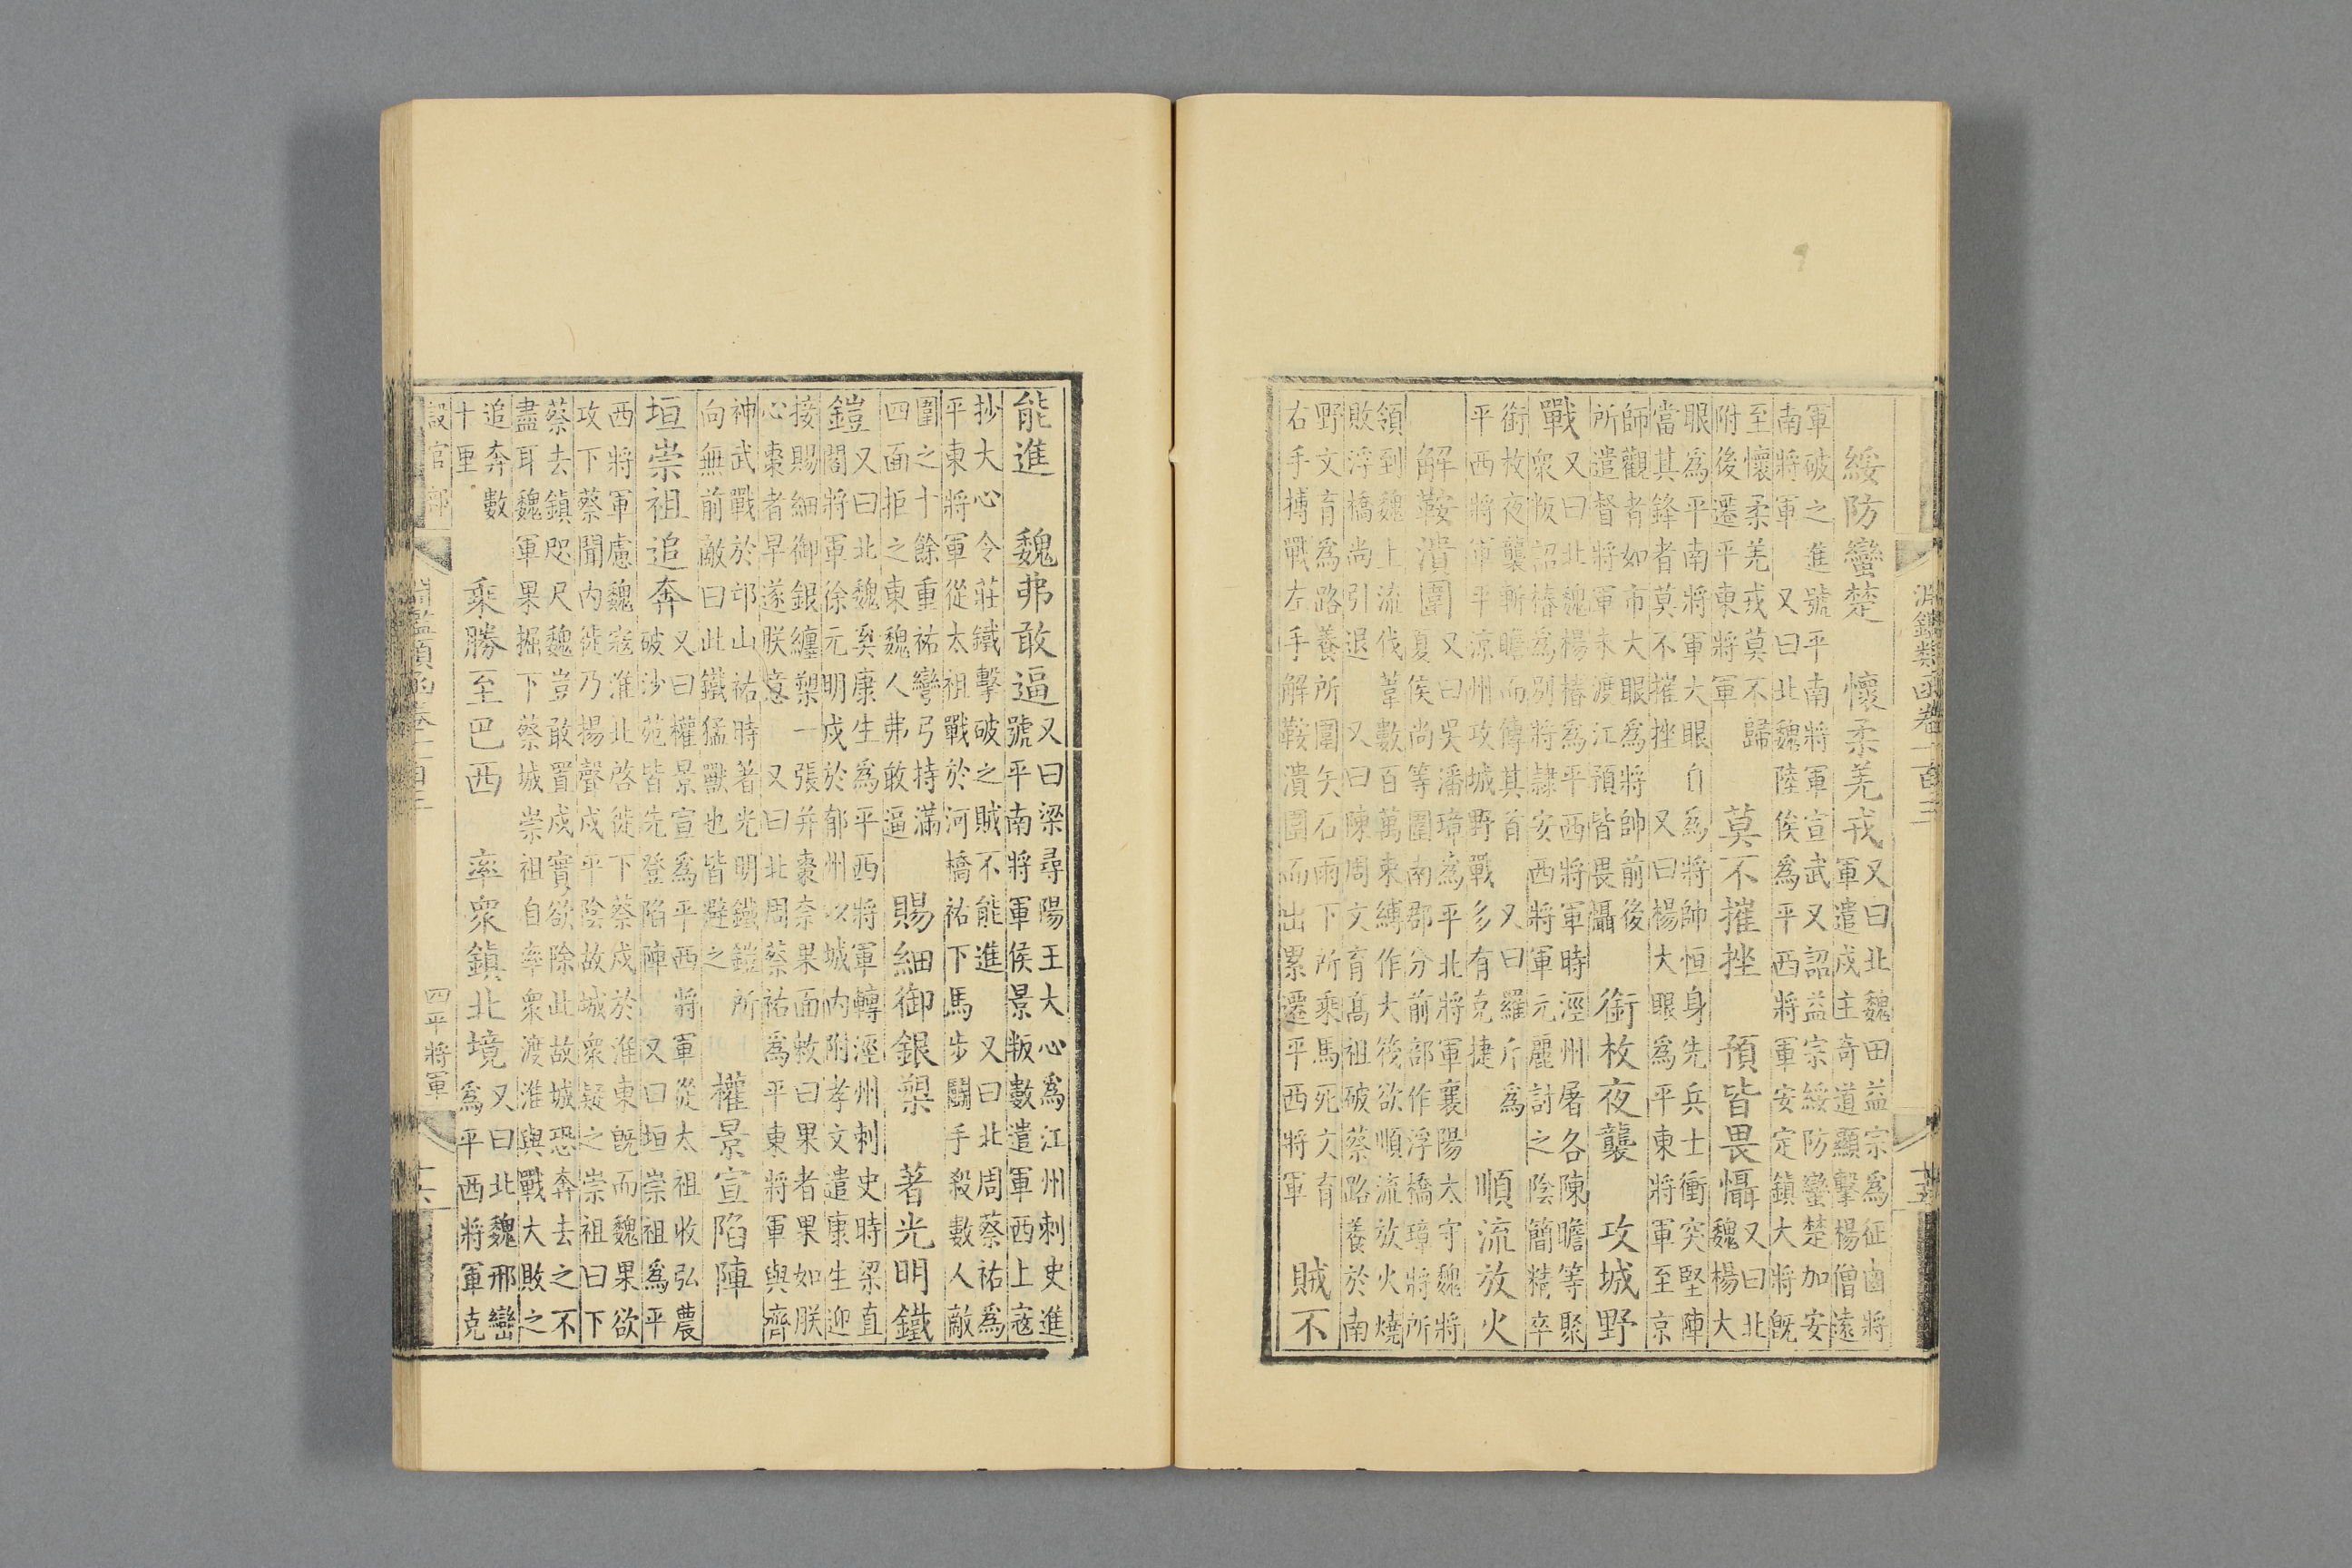 淵鑑類函卷一百三 十五
綏防蠻楚 懷柔羌戎
又曰北魏田益宗為征鹵將
軍遣戍主奇道顯擊楊僧遠
軍破之進號平南將軍宣武又詔益宗綏防蠻楚加安
南將軍 又曰北魏陸俟為平西將軍安定鎮大將旣
至懷柔羌戎莫不歸
附後遷平東將軍
莫不摧挫 預皆畏懾
又曰北
魏楊大
眼為平南將軍大眼自為將帥恒身先兵士衝突堅陣
當其鋒者莫不摧挫 又曰楊大眼為平東將軍至京
師觀者如市大眼為將帥前後
所遣督將軍未渡江預皆畏懾
銜枚夜襲 攻城野
戰
又曰北魏楊椿為平西將軍時涇州屠各陳瞻等聚
衆叛詔椿為別將隸安西將軍元麗討之陰簡精卒
銜枚夜襲斬瞻而傳其首 又曰羅斤為
平西將軍平涼州攻城野戰多有克捷
順流放火
解鞍潰圍
又曰吳潘璋為平北將軍襄陽太守魏將
夏侯尚等圍南郡分前部作浮橋璋將所
領到魏上流伐葦數百萬束縛作大筏欲順流放火燒
敗浮橋尚引退 又曰陳周文育高祖破蔡路養於南
野文育為路養所圍矢石雨下所乘馬死文育
右手搏戰左手解鞍潰圍而出累遷平西將軍
賊不
能進 魏弗敢逼
又曰梁尋陽王大心為江州刺史進
號平南將軍侯景叛數遣軍西上寇
抄大心令莊鐵擊破之賊不能進 又曰北周蔡祐為
平東將軍從太祖戰於河橋祐下馬步鬬手殺數人敵
圍之十餘重祐彎弓持滿
四面拒之東魏人弗敢逼
賜細御銀槊 著光明鐵
鎧
又曰北魏奚康生為平西將軍轉涇州刺史時梁直
閣將軍徐元明戍於郁州以城內附孝文遣康生迎
接賜細御銀纏槊一張并棗柰果面敕曰果者果如朕
心棗者早遂朕意 又曰北周蔡祐為平東將軍與齊
神武戰於邙山祐時著光明鐵鎧所
向無前敵曰此鐵猛獸也皆避之
權景宣陷陣
垣崇祖追奔
又曰權景宣為平西將軍從太祖收弘農
破沙苑皆先登陷陣 又曰垣崇祖為平
西將軍慮魏寇淮北啓徙下蔡戍於淮東旣而魏果欲
攻下蔡聞內徙乃揚聲戍平陰故城衆疑之崇祖曰下
蔡去鎮咫尺魏豈敢置戍實欲除此故城恐奔去之不
盡耳魏軍果掘下蔡城崇祖自率衆渡淮與戰大敗之
追奔數
十里
乘勝至巴西 率衆鎮北境
又曰北魏邢巒
為平西將軍克
設官部 淵鑑類函卷一百三 四平將軍 十六